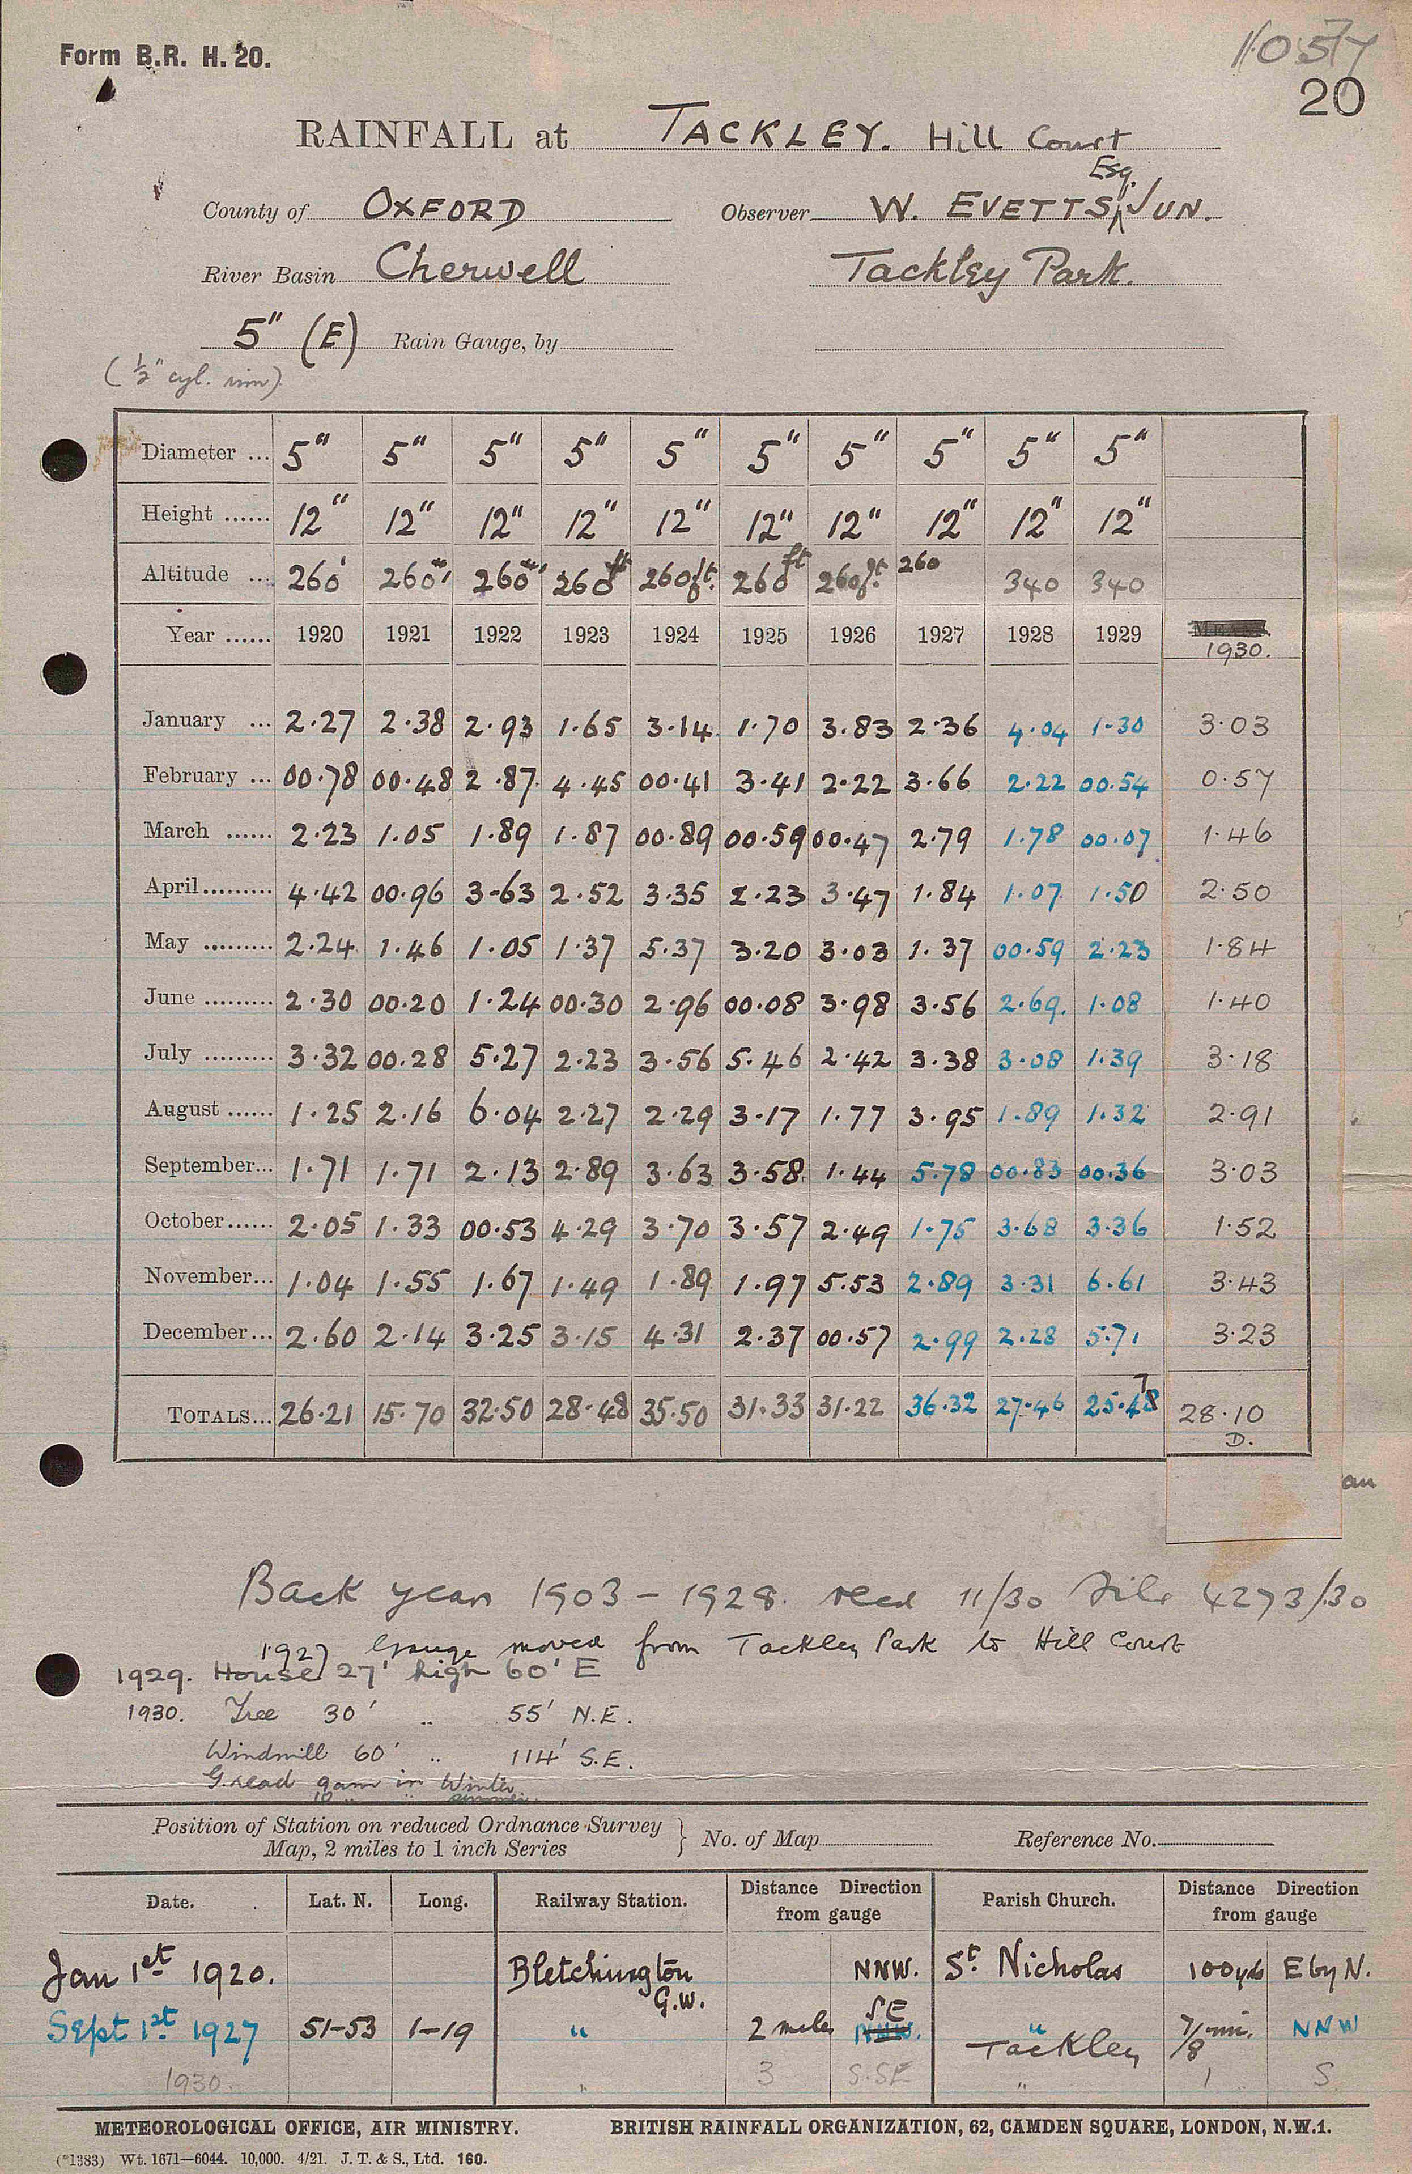 Form B.R. H. 20.
11057
20
RAINFALL at TACKLEY. Hill Court
County of OXFORD Observer W. EVETTS, Esq. JUN.
River Basin Cherwell Tackley Park.
5" (E) Rain Gauge, by
(½" cyl. rim)
Diameter ... 5" 5" 5" 5" 5" 5" 5" 5" 5" 5"
Height ...... 12" 12" 12" 12" 12" 12" 12" 12" 12" 12"
Altitude ... 260' 260' 260' 260ft 260ft. 260ft 260ft. 260 340 340
Year ...... 1920 1921 1922 1923 1924 1925 1926 1927 1928 1929 1930.
January ... 2.27 2.38 2.93 1.65 3.14 1.70 3.83 2.36 4.04 1.30 3.03
February ... 00.78 00.48 2.87 4.45 00.41 3.41 2.22 3.66 2.22 00.54 0.57
March ...... 2.23 1.05 1.89 1.87 00.89 00.59 00.47 2.79 1.78 00.07 1.46
April ......... 4.42 00.96 3-63 2.52 3.35 2.23 3.47 1.84 1.07 1.50 2.50
May ......... 2.24 1.46 1.05 1.37 5.37 3.20 3.03 1.37 00.59 2.23 1.84
June ......... 2.30 00.20 1.24 00.30 2.96 00.08 3.98 3.56 2.69 1.08 1.40
July ......... 3.32 00.28 5.27 2.23 3.56 5.46 2.42 3.38 3.08 1.39 3.18
August ...... 1.25 2.16 6.04 2.27 2.29 3.17 1.77 3.95 1.89 1.32 2.91
September... 1.71 1.71 2.13 2.89 3.63 3.58 1.44 5.78 00.83 00.36 3.03
October...... 2.05 1.33 00.53 4.29 3.70 3.57 2.49 1.75 3.68 3.36 1.52
November... 1.04 1.55 1.67 1.49 1.89 1.97 5.53 2.89 3.31 6.61 3.43
December... 2.60 2.14 3.25 3.15 4.31 2.37 00.57 2.99 2.28 5.71 3.23
TOTALS... 26.21 15.70 32.50 28.48 35.50 31.33 31.22 36.32 27.46 25.47 28.10
D.
an
Back years 1903 - 1928 recd 11/30 File 4273/30
1927 Gauge moved from Tackley Park to Hill Court
1929. House 27' high 60' E
1930. Tree 30' .. 55' N.E.
Windmill 60' .. 114' S.E.
G. read 9am in Winter
10 " " summer.
Position of Station on reduced Ordnance Survey
Map, 2 miles to 1 inch Series } No. of Map Reference No.
Date. Lat. N. Long. Railway Station. Distance Direction from gauge Parish Church. Distance Direction from gauge
Jan 1st 1920. Bletchington G.W. NNW. St. Nicholas 100yds E by N.
Sept 1st 1927 51-53 1-19 " 2 miles SE NNW. " Tackley 7/8 mi. NNW
1930. " 3 S.SE " 1 S
METEOROLOGICAL OFFICE, AIR MINISTRY. BRITISH RAINFALL ORGANIZATION, 62, CAMDEN SQUARE, LONDON, N.W.1.
(*1383) Wt. 1671—6044. 10,000. 4/21. J. T. & S., Ltd. 160.